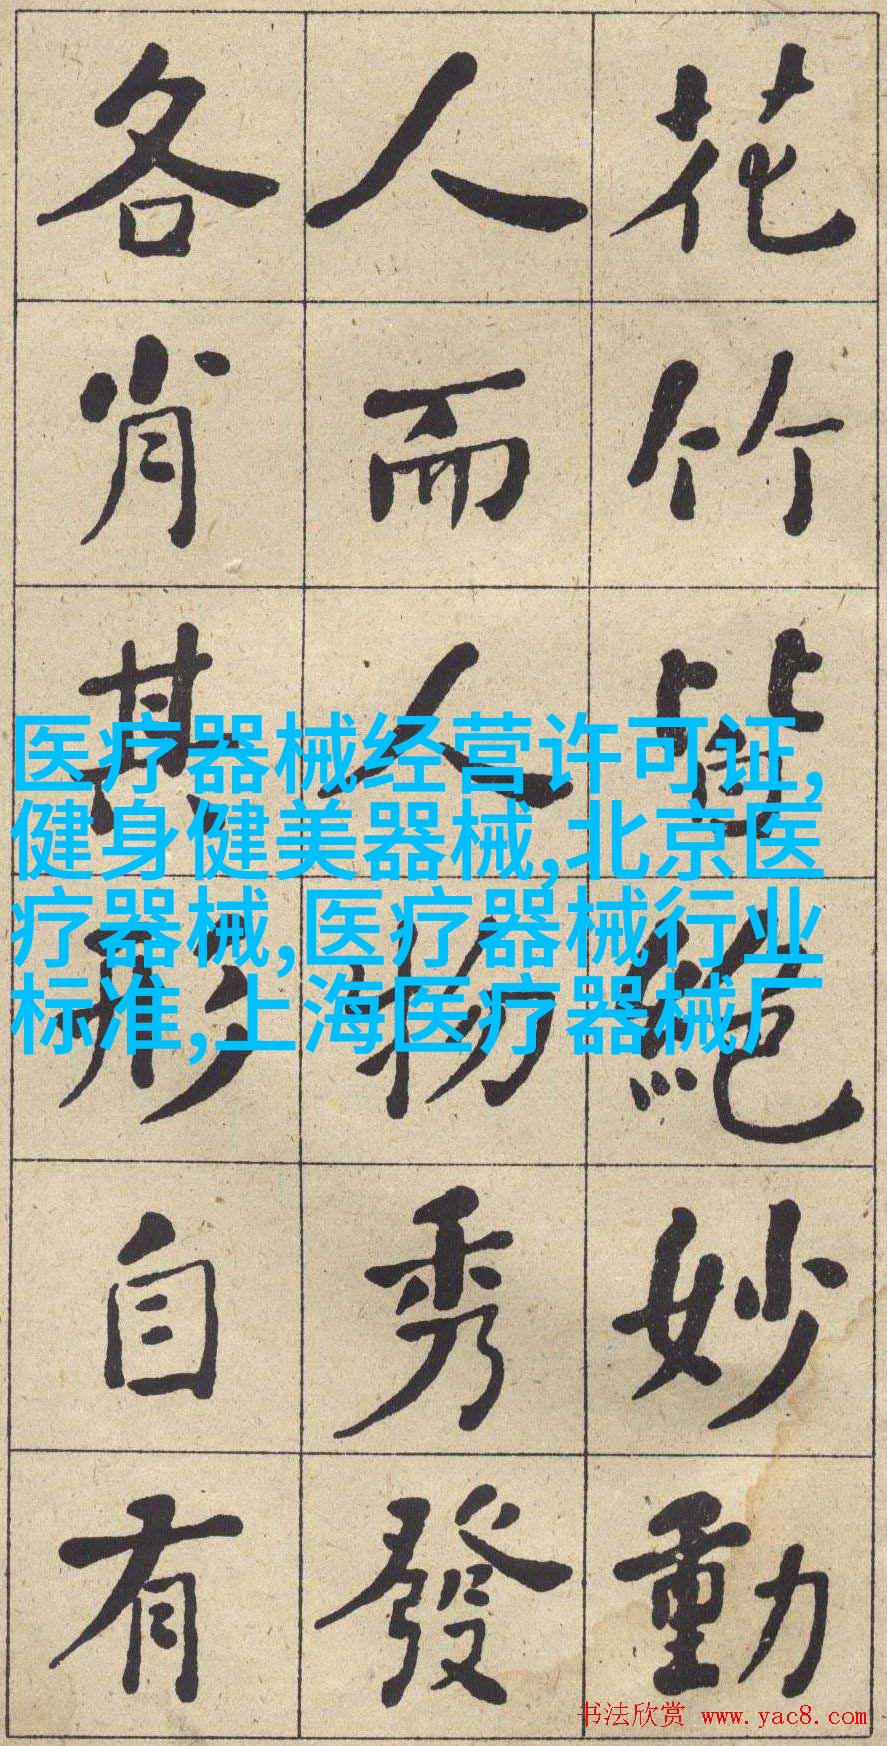 花竹皆絕妙動
人而人物秀發
各肖其形自有
医疗器械经营许可证,
健身健美器械,北京医
疗器械,医疗器械行业
标准,上海医疗器械厂
书法欣赏 www.yac8.com